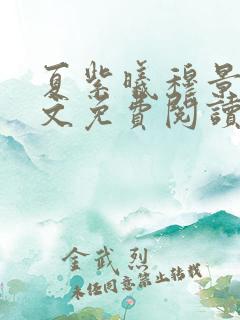 夏紫曦穆景
文免費閱讀
金武烈
未经同意禁止转载